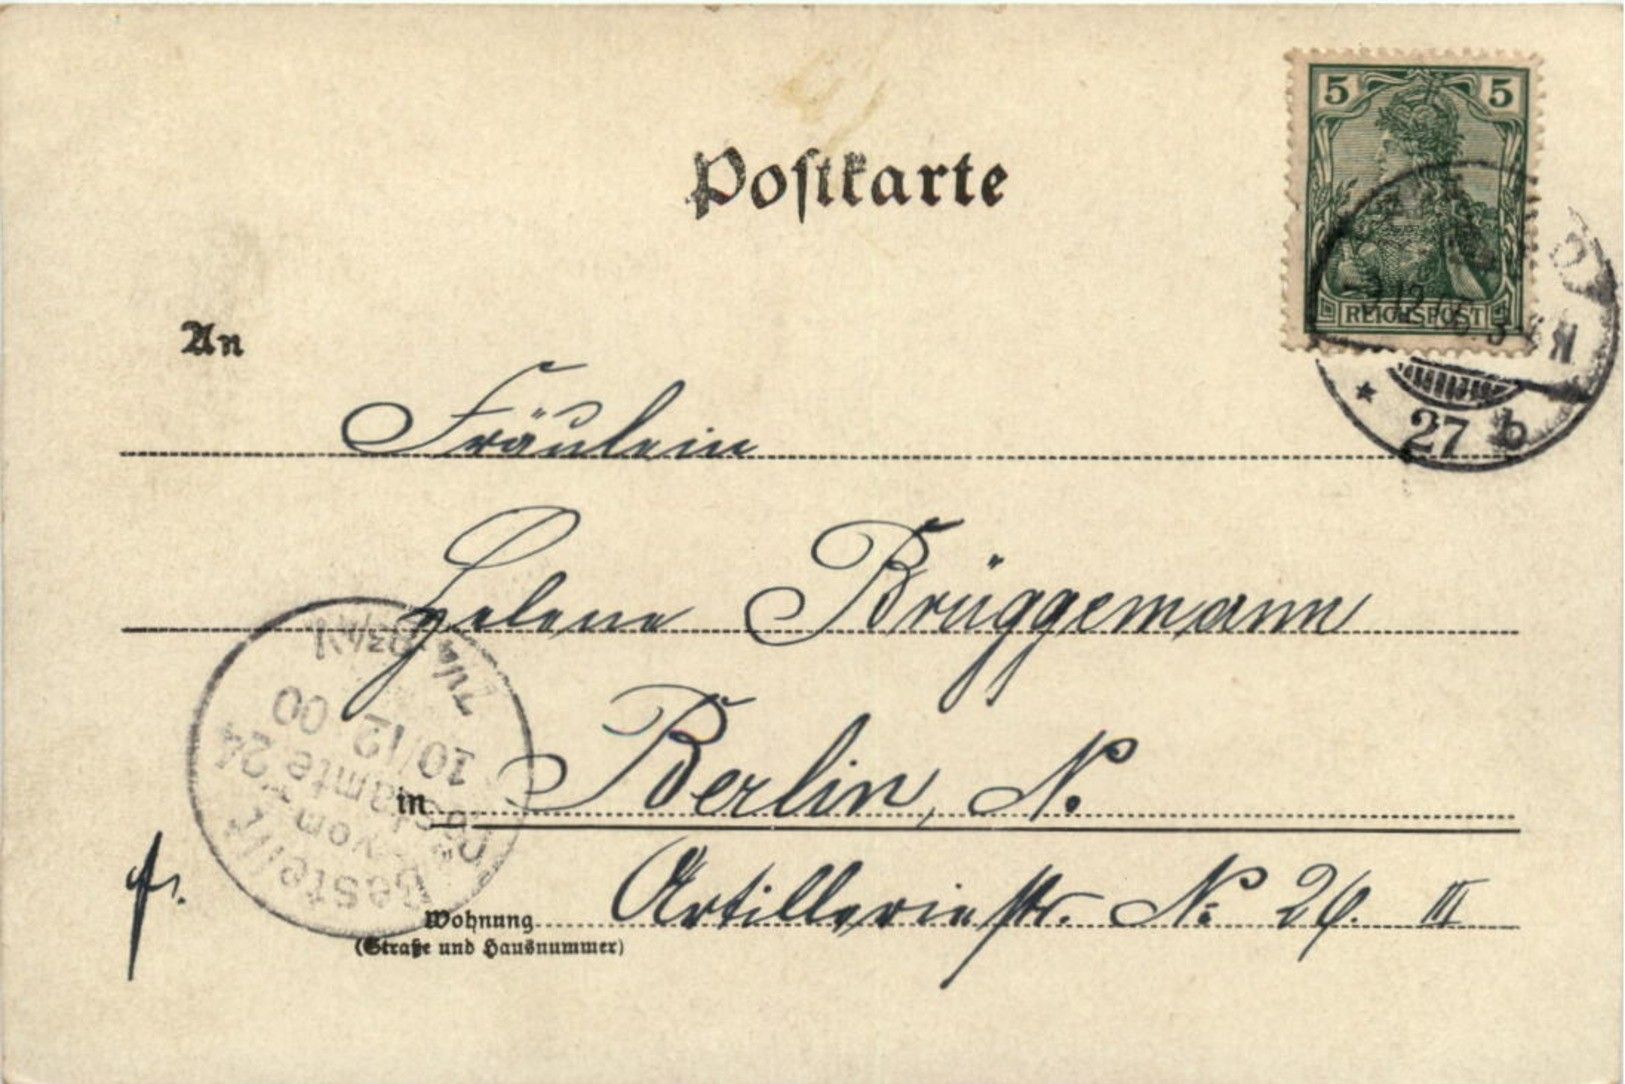 Postkarte
5 5
REICHSPOST
12.00. 3
27 b
An
Fräulein
Helene Brüggemann
in Berlin, N.
fr.
Wohnung Artilleriestr. No. 26. III
(Straße und Hausnummer)
Bestellt
vom
Postamte 24
10/12 00